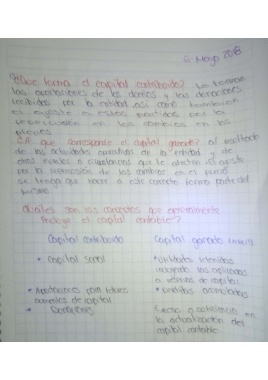 6 Mayo 2018
¿Que forma el capital contribuido? Lo forman
las aportaciones de los dueños y las donaciones
recibidas por la entidad así como también
el ajuste en estas partidas por la
repercusión en los cambios en los
precios.
¿A que corresponde el capital ganado? al resultado
de las actividades operativas de la entidad y de
otros eventos o circunstancias que le afectan. el ajuste
por la repercusión de los cambios en el precio
se tenga que hacer a este concepto forma parte del
mismo.
¿Cuáles son los conceptos que
integra el capital contable?
Capital contribuido Capital ganado
• Capital social • Utilidades retenidas
incluyendo las aplicadas
a reservas de capital
• Aportaciones para futuros • Perdidas acumuladas
aumentos de capital
• Donaciones Exceso o insuficiencia en
la actualización del
capital contable